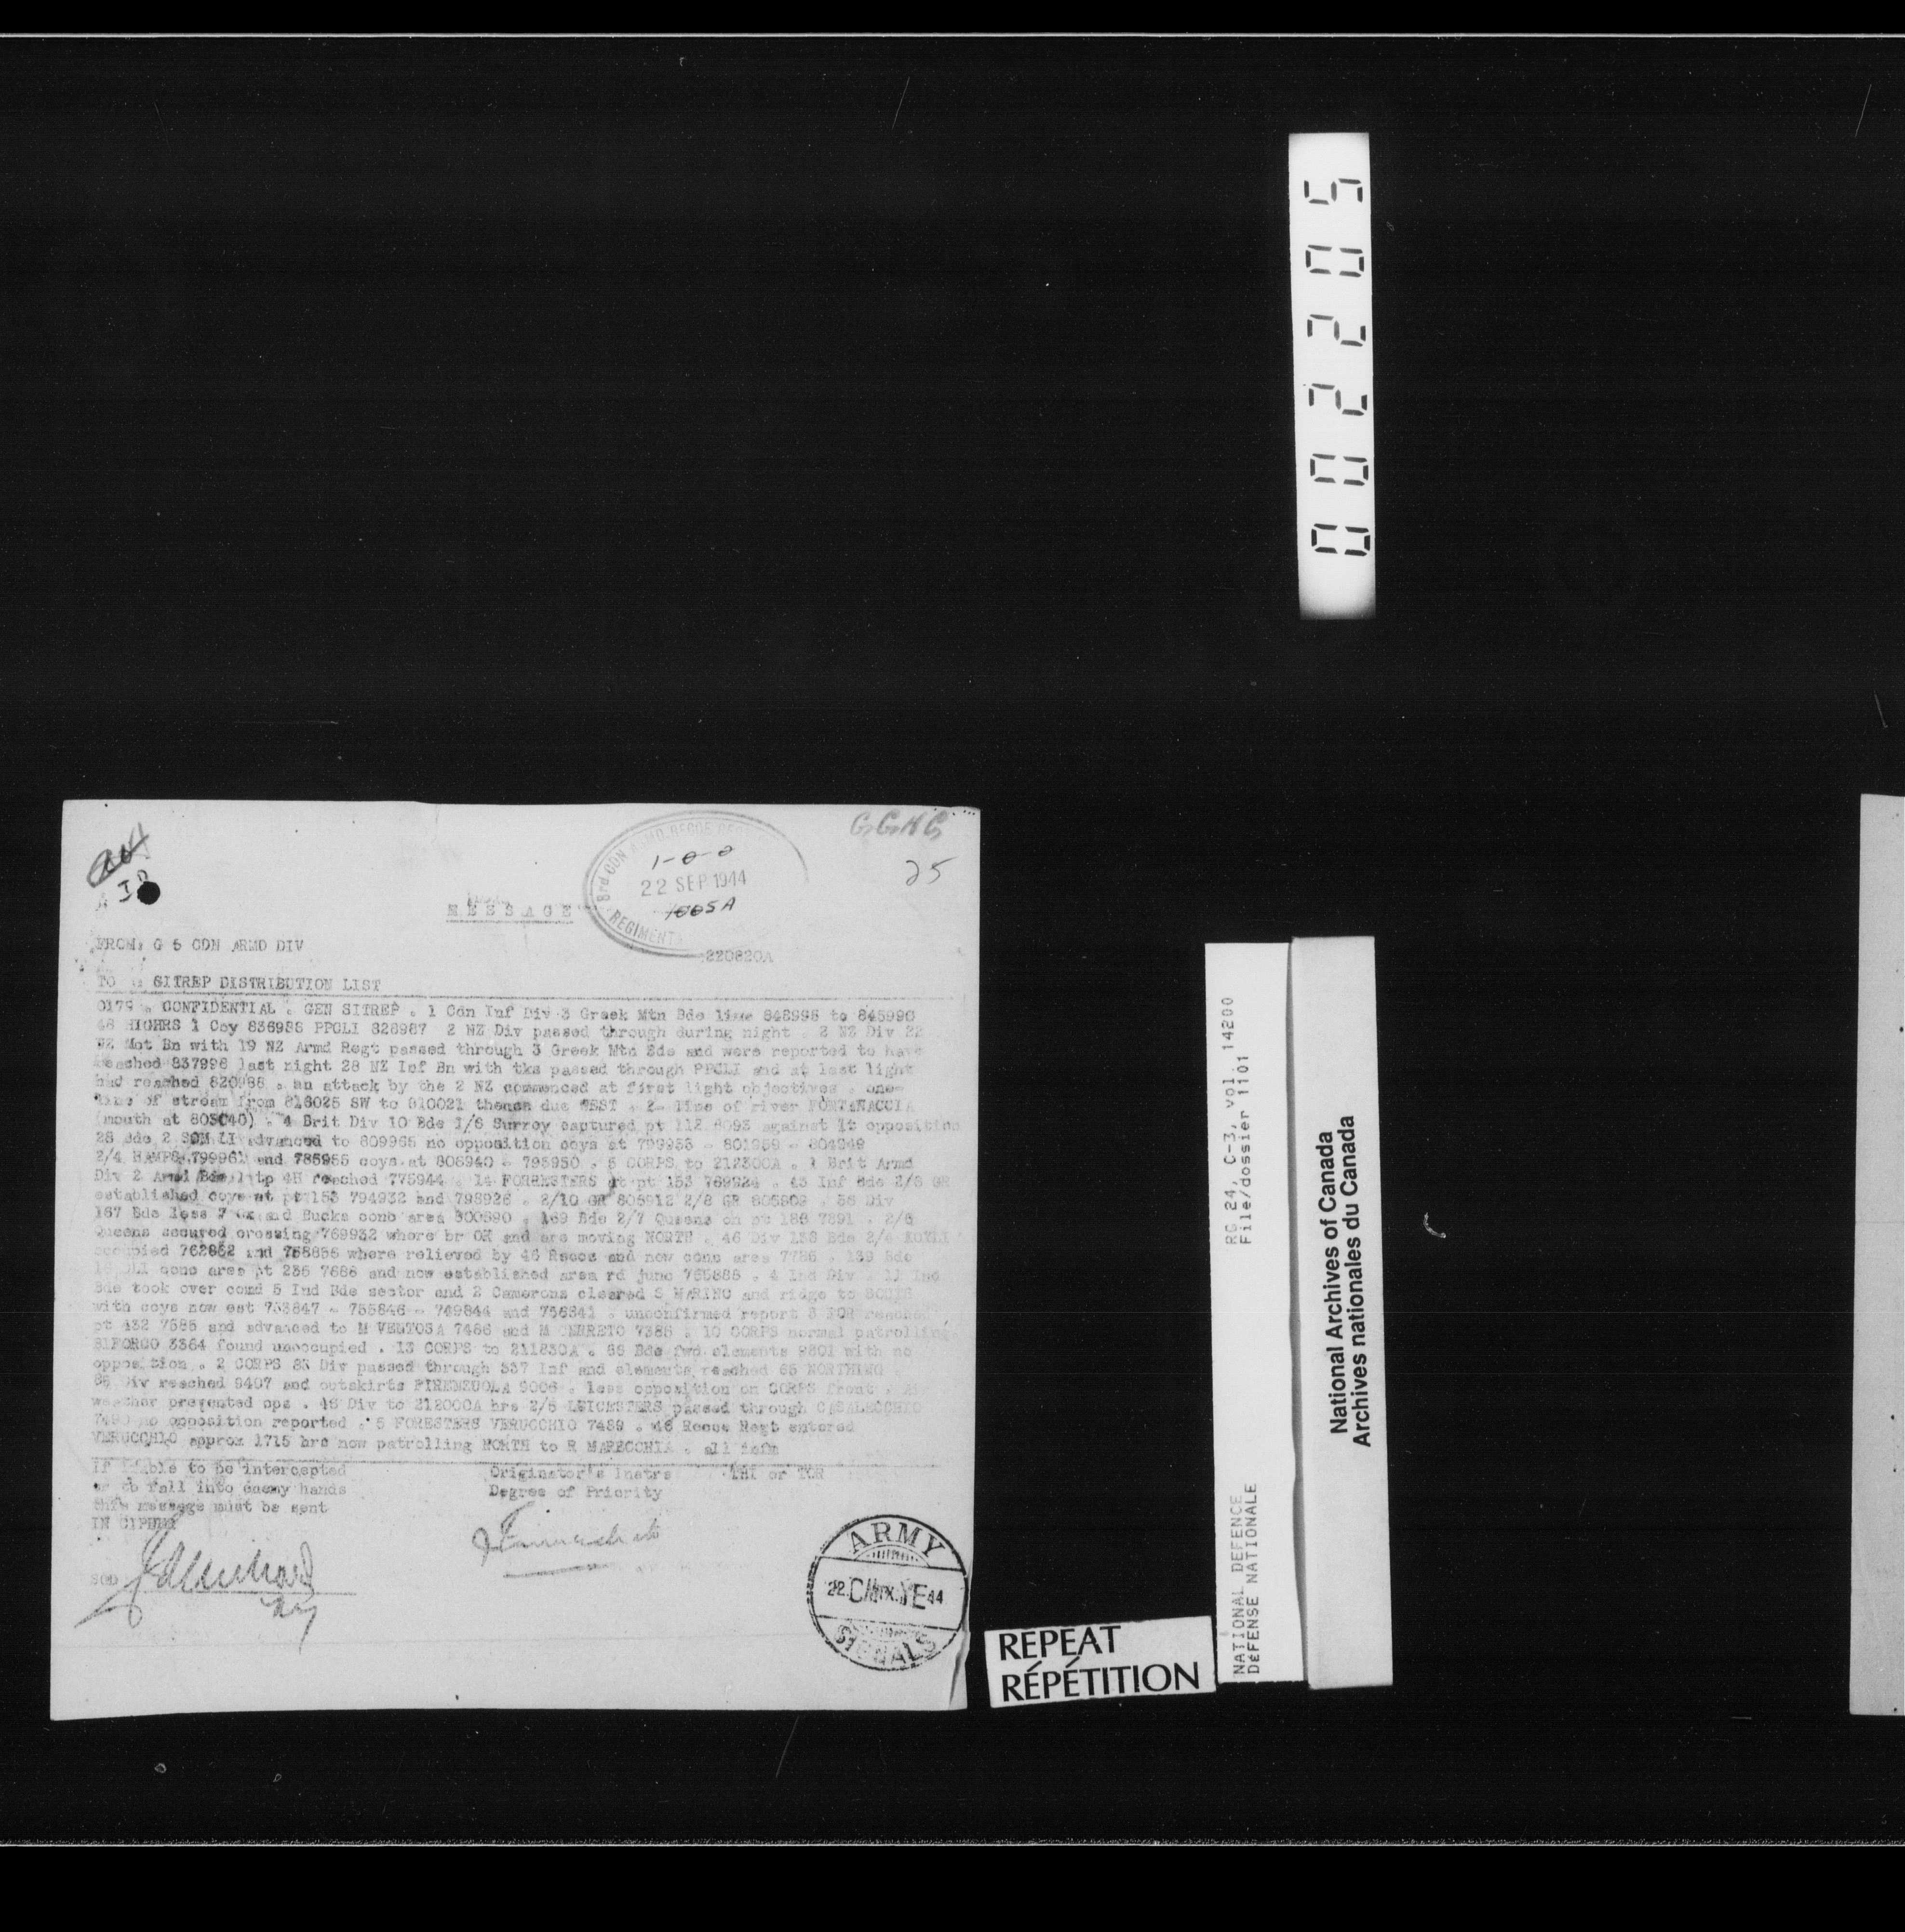 GGHG
25
3rd CDN ARMD RECCE
REGIMENT
1-0-0
22 SEP 1944
1005A
MESSAGE
220820A
FROM: G 5 CDN ARMD DIV
TO : SITREP DISTRIBUTION LIST
0179 . CONFIDENTIAL . GEN SITREP . 1 Cdn Inf Div 3 Greek Mtn Bde line 848998 to 845990
48 HIGHRS 1 Coy 836988 PPCLI 828987 2 NZ Div passed through during night . 2 NZ Div 22
NZ Mot Bn with 19 NZ Armd Regt passed through 3 Greek Mtn Bde and were reported to have
reached 837998 last night 28 NZ Inf Bn with tks passed through PPCLI and at last light
had reached 820986 . an attack by the 2 NZ commenced at first light objectives . one-
line of stream from 816025 SW to 810021 thence due WEST . 2- line of river FONTANACCIA
(mouth at 803040) . 4 Brit Div 10 Bde 1/6 Surrey captured pt 112 8093 against lt opposition
28 Bde 2 SOM LI advanced to 809965 no opposition coys at 799953 - 801959 - 804949
2/4 HAMPS 799961 and 785955 coys at 806940 - 795950 . 5 CORPS to 212300A . 1 Brit Armd
Div 2 Armd Bde 1 tp 4H reached 775944 . 14 FORRESTERS at pt 153 789924 . 43 Inf Bde 2/8 GR
established coys at pt 153 794932 and 798926 . 2/10 GR 805912 2/8 GR 805909 . 56 Div
167 Bde less 7 Ox and Bucks conc area 800890 . 169 Bde 2/7 Queens on pt 186 7891 . 2/6
Queens secured crossing 769932 where br OK and are moving NORTH . 46 Div 138 Bde 2/4 KOYLI
occupied 762862 and 758856 where relieved by 46 Recce and now conc area 7786 . 139 Bde
LI conc area pt 236 7686 and now established area rd junc 765886 . 4 Ind Div . 11 Ind
Bde took over comd 5 Ind Bde sector and 2 Camerons cleared S MARINO and ridge to
with coys now est 753847 - 755846 - 749844 and 756841 . unconfirmed report 3 FOR reached
pt 432 7585 and advanced to M VENTOSA 7486 and M CERRETO 7385 . 10 CORPS normal patrolling
BIFORCO 3364 found unoccupied . 13 CORPS to 211830A . 66 Bde fwd elements 9801 with no
opposition . 2 CORPS 85 Div passed through 337 Inf and elements reached 65 NORTHING
85 Div reached 9407 and outskirts FIRENZUOLA 9006 . less opposition on CORPS front .
weather prevented ops . 46 Div to 212000A hrs 2/5 LEICESTERS passed through CASALECCHIO
7490 no opposition reported . 5 FORESTERS VERUCCHIO 7489 . 46 Recce Regt entered
VERUCCHIO approx 1715 hrs now patrolling NORTH to R MARECCHIA . all infm
If liable to be intercepted
or to fall into enemy hands
this message must be sent
IN CIPHER
Originator's Instrs THI or TOR
Degree of Priority
SGD
ARMY
22 IX 44
SIGNALS
REPEAT
RÉPÉTITION
NATIONAL DEFENCE
DÉFENSE NATIONALE
RG 24, C-3, vol. 14200
File/dossier 1101
National Archives of Canada
Archives nationales du Canada
002205